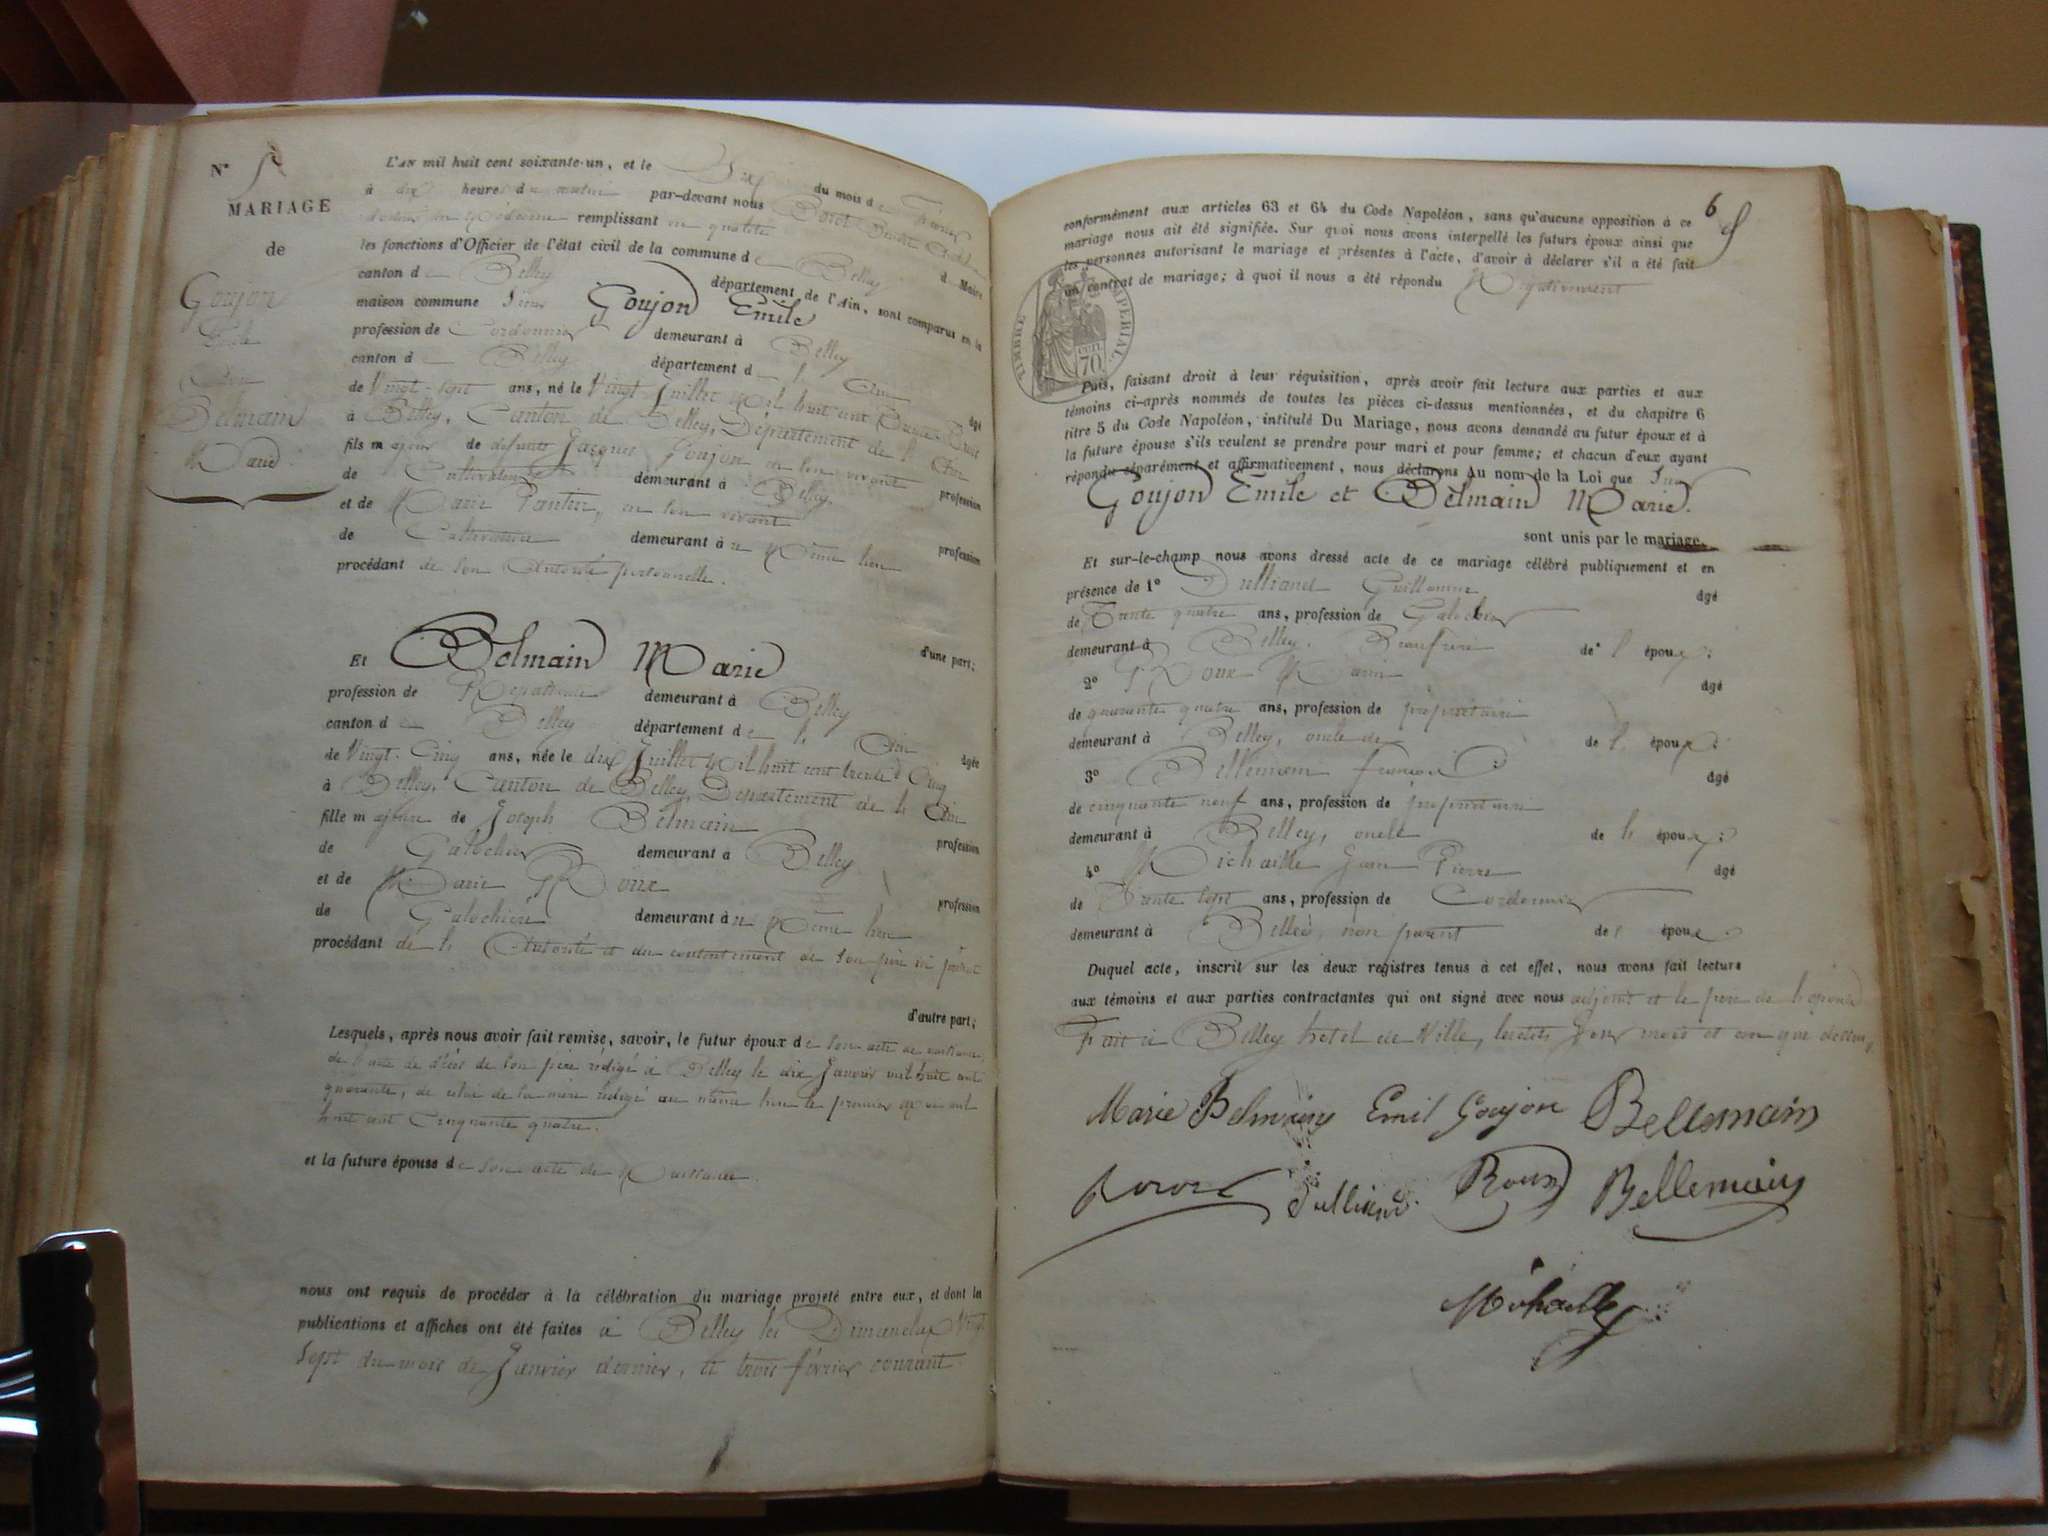 N° 5
MARIAGE
de
Goujon
Emile
Avec
Belmain
Marie
L'AN mil huit cent soixante-un, et le Dix du mois de Février
à dix heures du matin par-devant nous
docteur en Médecine remplissant en qualité d Maire
les fonctions d'Officier de l'état civil de la commune de Belley
canton de Belley département de l'Ain, sont comparus en la
maison commune Sieur Goujon Emile
profession de Cordonnier demeurant à Belley
canton de Belley département de l'Ain âgé
de Vingt-sept ans, né le Vingt Juillet Mil huit cent trente trois
à Belley, Canton de Belley, Département de l'Ain
fils majeur de défunts Jacques Goujon en son vivant profession
de Cultivateur demeurant à Belley
et de Marie Pantin, en son vivant profession
de Cultivatrice demeurant au Même lieu
procédant de son Autorité personnelle.
d'une part;
Et Belmain Marie
profession de demeurant à Belley
canton de Belley département de l'Ain âgée
de Vingt-Cinq ans, née le dix Juillet Mil huit cent trente Cinq
à Belley, Canton de Belley, Département de l'Ain
fille majeure de Joseph Belmain profession
de Galochier demeurant à Belley
et de Marie Roux profession
de Galochière demeurant au Même lieu
procédant de l'Autorité et du consentement de son père ici présent
d'autre part;
Lesquels, après nous avoir fait remise, savoir, le futur époux de son acte de naissance,
de l'acte de décès de son père rédigé à Belley le dix Janvier mil huit cent
quarante, de celui de sa mère rédigé au même lieu le premier Mai mil
huit cent Cinquante quatre.
et la future épouse de son acte de Naissance.
nous ont requis de procéder à la célébration du mariage projeté entre eux, et dont les
publications et affiches ont été faites à Belley les Dimanches Vingt
Sept du mois de Janvier dernier, et trois février courant
6
conformément aux articles 63 et 64 du Code Napoléon, sans qu'aucune opposition à ce
mariage nous ait été signifiée. Sur quoi nous avons interpellé les futurs époux ainsi que
les personnes autorisant le mariage et présentes à l'acte, d'avoir à déclarer s'il a été fait
un contrat de mariage; à quoi il nous a été répondu Négativement
TIMBRE IMPÉRIAL
70
Puis, faisant droit à leur réquisition, après avoir fait lecture aux parties et aux
témoins ci-après nommés de toutes les pièces ci-dessus mentionnées, et du chapitre 6
titre 5 du Code Napoléon, intitulé Du Mariage, nous avons demandé au futur époux et à
la future épouse s'ils veulent se prendre pour mari et pour femme; et chacun d'eux ayant
répondu séparément et affirmativement, nous déclarons Au nom de la Loi que Sieur
Goujon Emile et Belmain Marie.
sont unis par le mariage.
Et sur-le-champ nous avons dressé acte de ce mariage célébré publiquement et en
présence de 1° Dulliand Guillaume âgé
de Trente quatre ans, profession de Galochier
demeurant à Belley. Beaufrère de l'époux;
2° Roux Marin âgé
de quarante quatre ans, profession de propriétaire
demeurant à Belley, oncle de de l'épouse;
3° Bellemain françois âgé
de cinquante neuf ans, profession de propriétaire
demeurant à Belley, oncle de l'épouse;
4° Michaille Jean Pierre âgé
de Trente sept ans, profession de Cordonnier
demeurant à Belley, non parent de l'époux
Duquel acte, inscrit sur les deux registres tenus à cet effet, nous avons fait lecture
aux témoins et aux parties contractantes qui ont signé avec nous adjoint et le père de l'épouse
Fait à Belley hotel de Ville, lesdits Jour mois et an que dessus,
Marie Belmain Emil Goujon Bellemain
Dulliand Roux Bellemain
Michaille